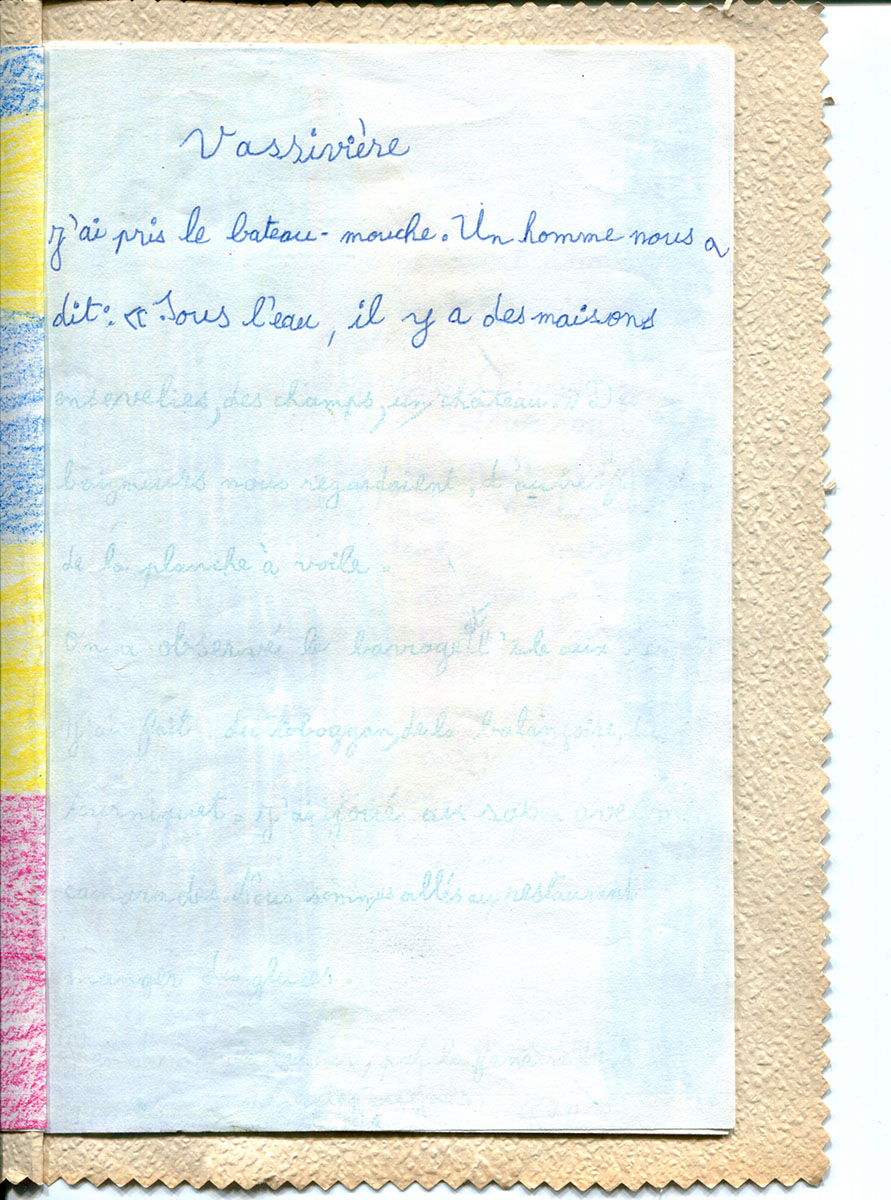 Vassivière
J'ai pris le bateau-mouche. Un homme nous a
dit : « Sous l'eau, il y a des maisons
ensevelies, des champs, un château. » D
baigneurs nous regardaient, d'autres f
de la planche à voile.
On a observé le barrage et l'île aux
J'ai fait du toboggan, de la balançoire, du
tourniquet. J'ai joué au sable avec m
camarades. Nous sommes allés au restaurant
manger des glaces.
, par la fenêtre